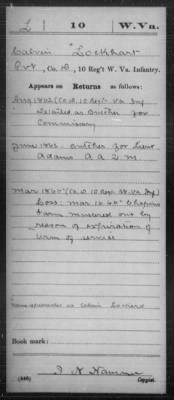 L | 10 | W. Va.
Calvin Lockhart
Pvt, Co. D, 10 Reg't W. Va. Infantry.
Appears on Returns as follows:
Aug 1862 (Co D. 10 Reg't Va Inf)
Detailed as Butcher for
Commissary
June 1863. Butcher for Lieut
Adams A A Q M.
Mar 1865 (Co D 10 Reg W.Va Inf)
Loss. Mar 12 65 Chapins
Farm mustered out by
reason of expiration of
term of service
Name
as Calvin
Book mark:
(646)
Copyist.